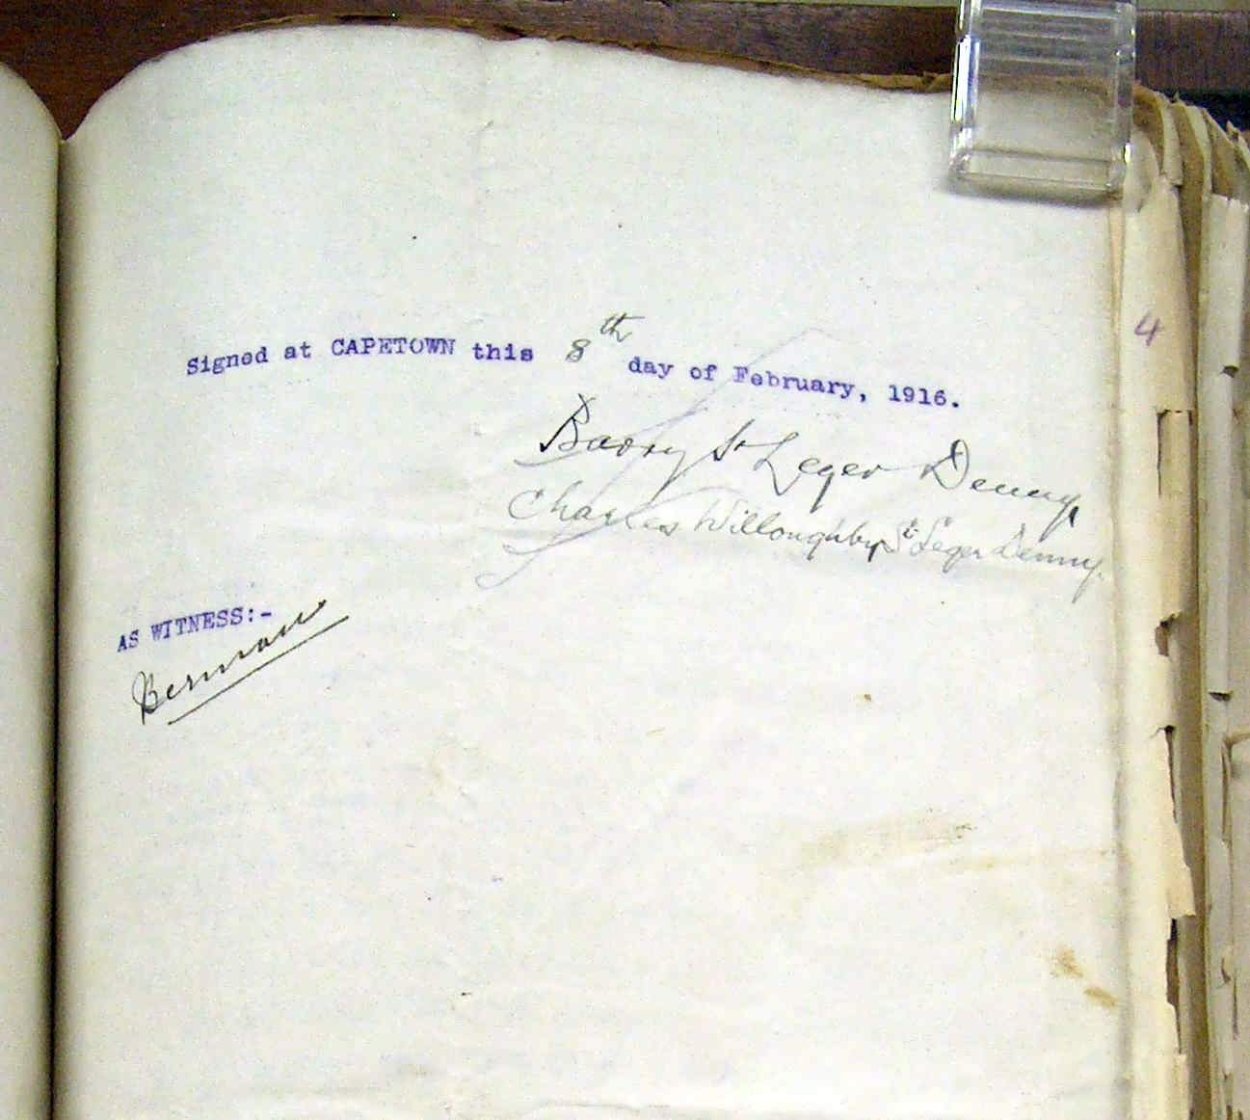 Signed at CAPETOWN this 8th day of February, 1916.
Barry St Leger Denny
Charles Willoughby St Leger Denny.
AS WITNESS:-
4